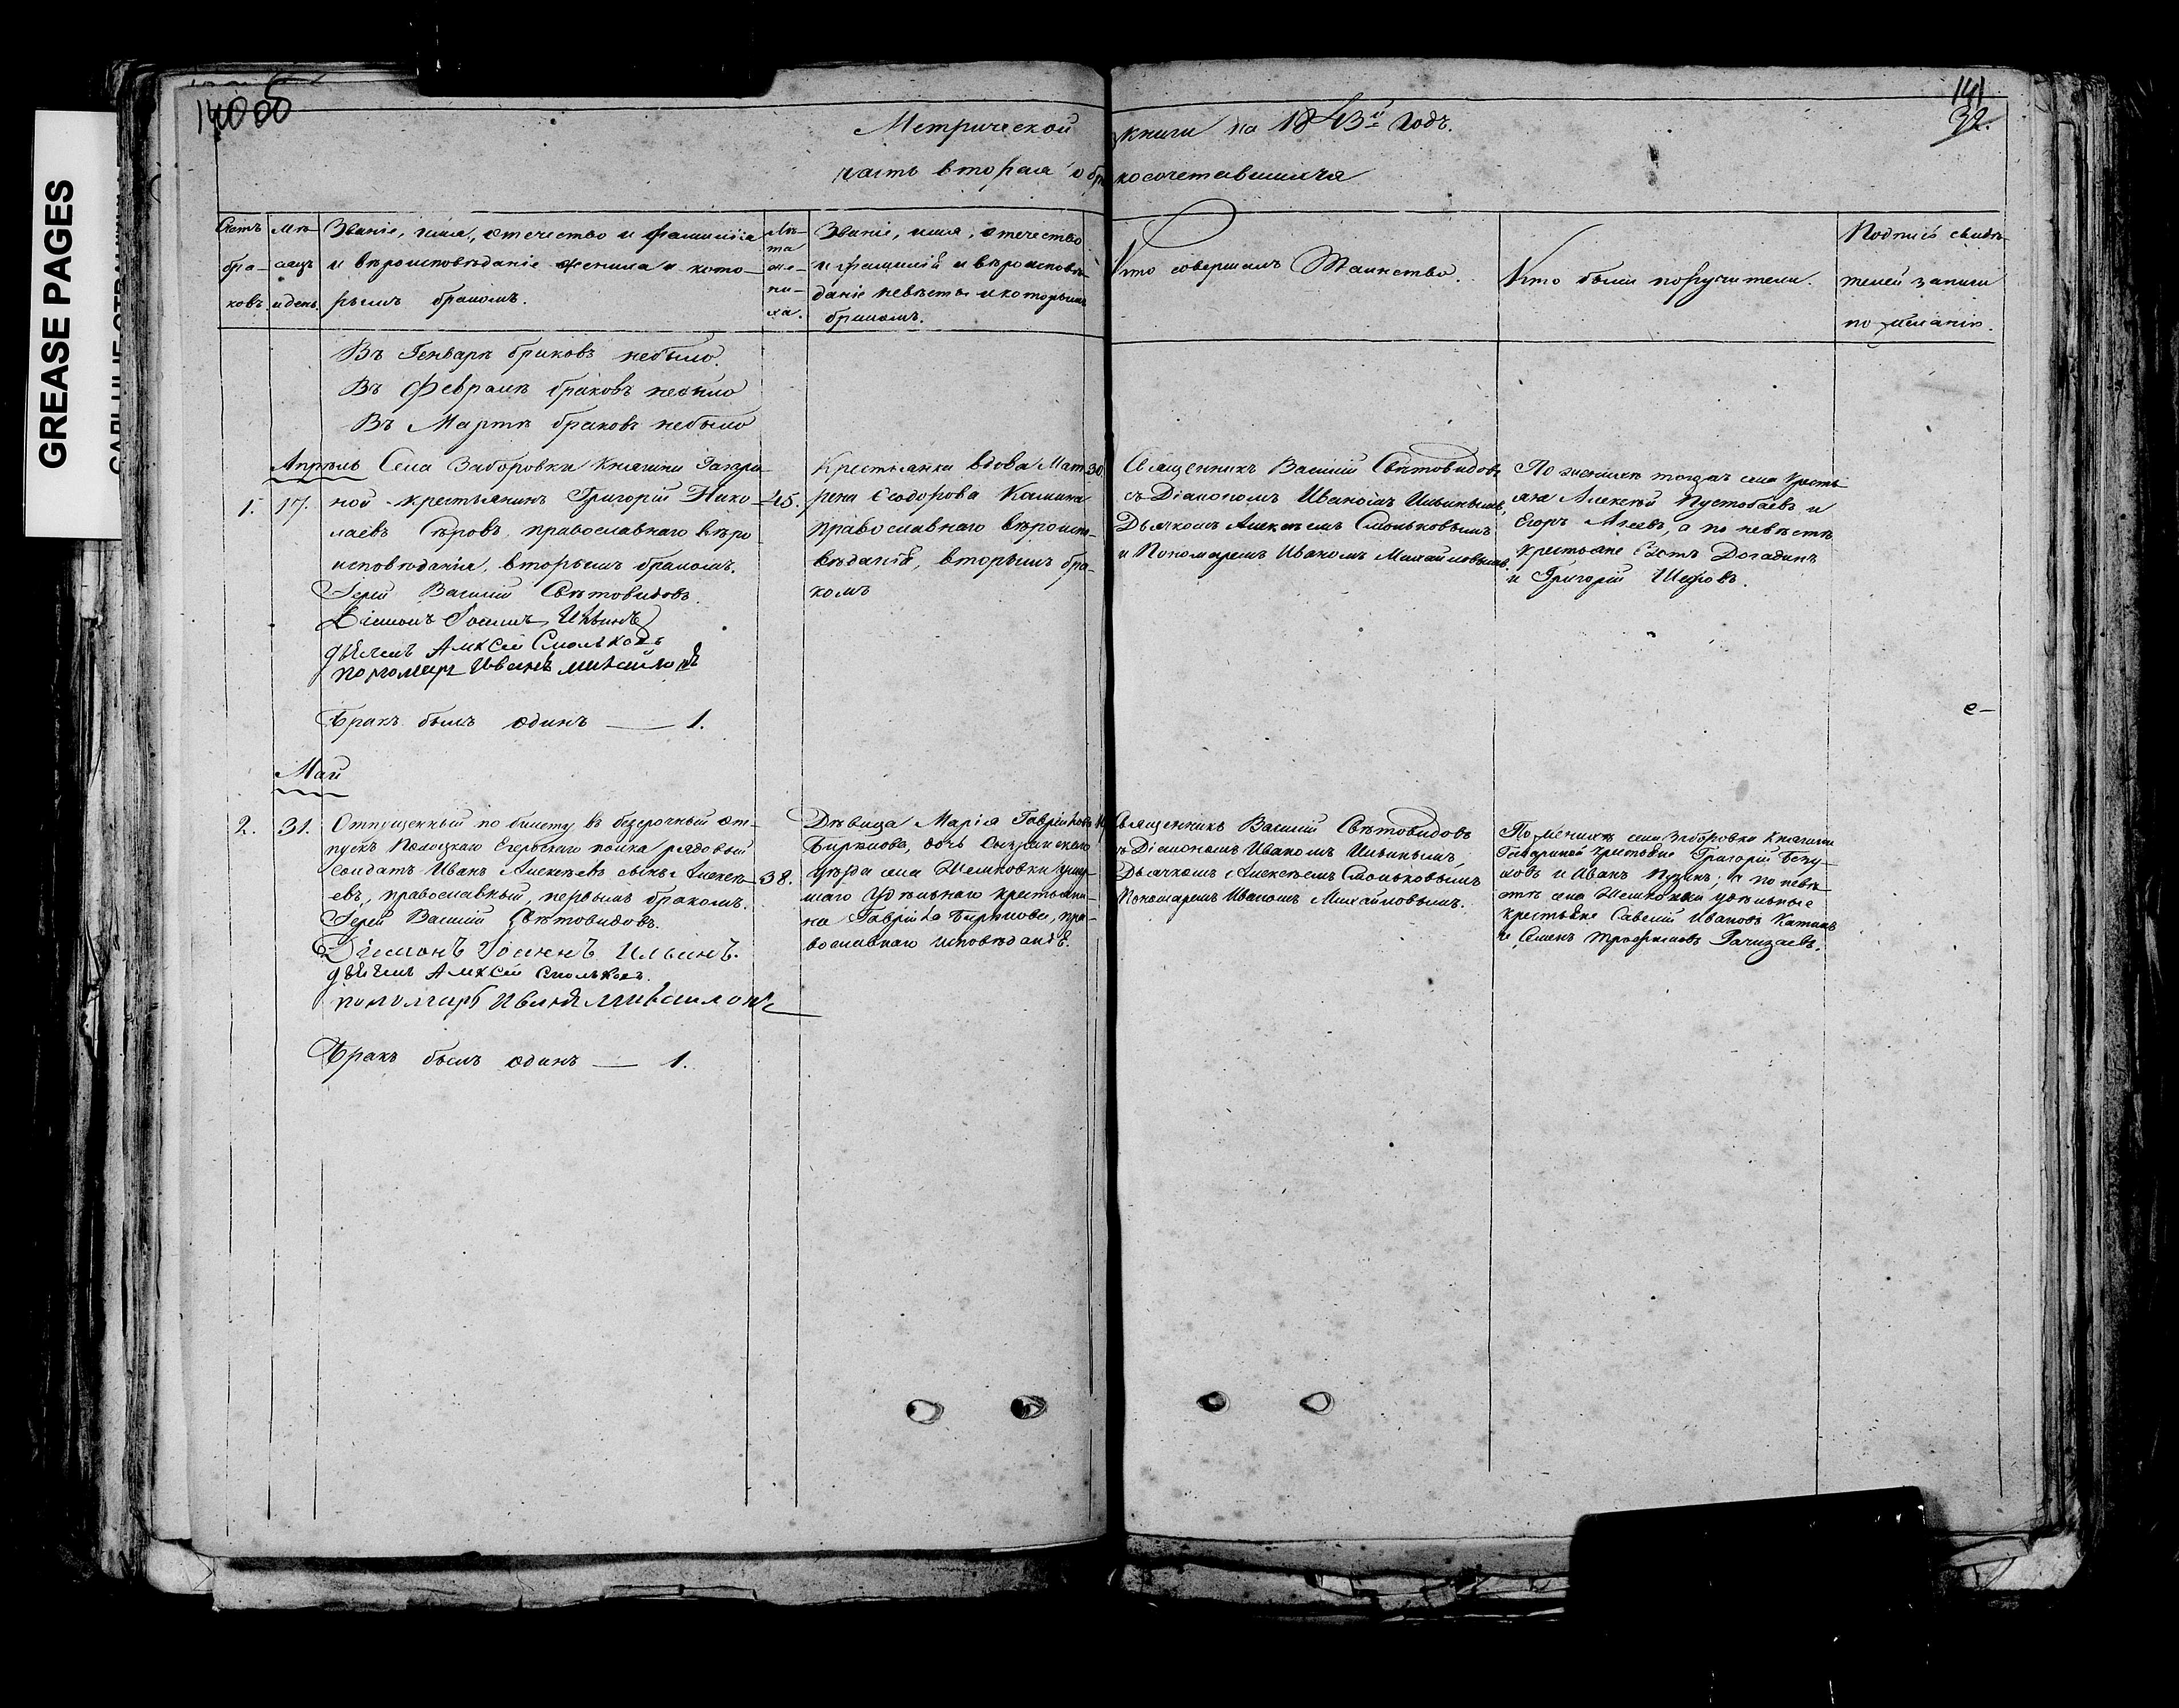 GREASE PAGES
140 об
141
32.
Метрической книги на 1843й годъ.
часть вторая о бракосочетавшихся
Счетъ браковъ
Мѣсяцъ и день
Званіе, имя, отечество и фамилія
и вѣроисповѣданіе жениха и кото-
рымъ бракомъ.
Лѣта жениха.
Званіе, имя, отечество
и фамилія и вѣроисповѣ-
даніе невѣсты и которымъ
бракомъ.
Кто совершалъ Таинство.
Кто были поручители.
Подпись свидѣ-
телей записи
по желанію.
Въ Генварѣ браковъ небыло.
Въ Февралѣ браковъ небыло
Въ Мартѣ браковъ небыло
Апрѣль
1.
17.
Села Заборовки Княгини Гагари-
ной крестьянинъ Григорій Нико-
лаевъ Сѣровъ, православнаго вѣро-
исповѣданія, вторымъ бракомъ.
Іерей Василій Свѣтовидовъ.
Діаконъ Іоаннъ Ильинъ
дьячекъ Алексей Смольковъ
пономарь Иванъ Михайловъ
45.
Крестьянка вдова Мат-
рена Ѳеодорова Камина
православнаго вѣроиспо-
вѣданія, вторымъ бра-
комъ
30.
Священникъ Василій Свѣтовидовъ
съ Діакономъ Иваномъ Ильинымъ,
Дьячкомъ Алексѣемъ Смольковымъ
и Пономаремъ Иваномъ Михайловымъ.
По женихѣ тогожъ села кресть-
яне Алексѣй Пустобаевъ и
Егоръ Агеевъ, а по невѣстѣ
крестьяне Догадинъ
и Григорій
Бракъ былъ одинъ — 1.
Май
2.
31.
Отпущенный по билету въ безсрочный от-
пускъ Полоцкаго Егерскаго полка рядовый
солдатъ Иванъ Алексѣевъ сынъ Алексѣ-
евъ, православный, первымъ бракомъ.
Іерей Василій Свѣтовидовъ.
Діаконъ Іоаннъ Ильинъ.
дьячекъ Алексей Смольковъ.
пономарь Иванъ Михайловъ
38.
Дѣвица Марія Гаврилова
Бирюкова, дочь Сызранскаго
уѣзда села Шешковки
Удѣльнаго крестьяни-
на Гаврила Бирюкова, пра-
вославнаго исповѣданія.
Священникъ Василій Свѣтовидовъ
съ Діакономъ Иваномъ Ильинымъ,
Дьячкомъ Алексѣемъ Смольковымъ
Пономаремъ Иваномъ Михайловымъ.
По женихѣ села Заборовки Княгини
Гагариной крестьяне Григорій
и Иванъ Пузинъ; а по невѣ-
стѣ села Шешковки удѣльные
крестьяне Савелій Ивановъ
и Семенъ Трофимовъ
Бракъ былъ одинъ — 1.